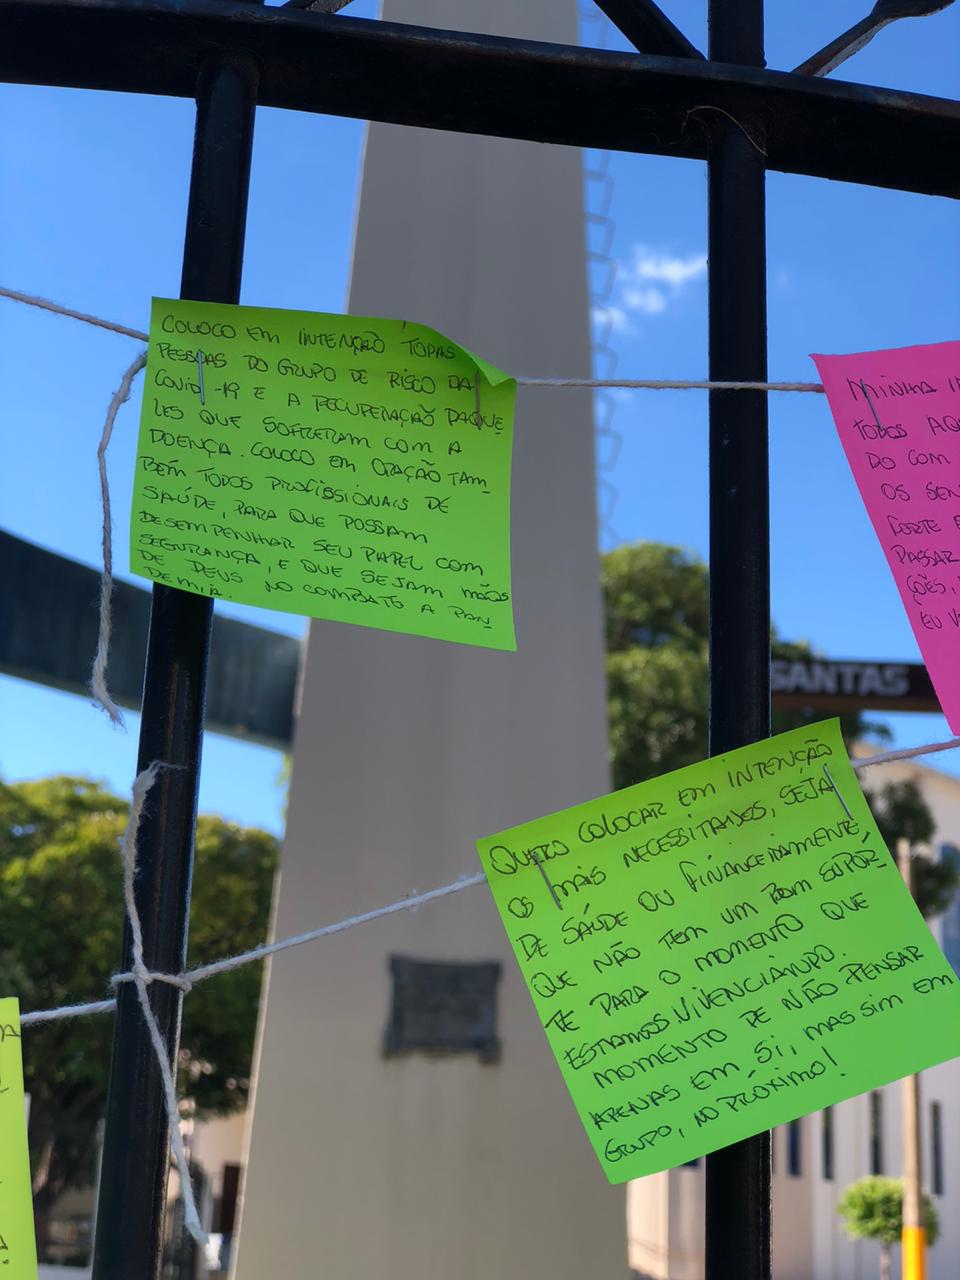 COLOCO EM INTENÇÃO TODAS
PESSOAS DO GRUPO DE RISCO DA
COVID-19 E A RECUPERAÇÃO DAQUE
LES QUE SOFRERAM COM A
DOENÇA. COLOCO EM ORAÇÃO TAM-
BÉM TODOS PROFISSIONAIS DE
SAÚDE, PARA QUE POSSAM
DESEMPENHAR SEU PAPEL COM
SEGURANÇA, E QUE SEJAM MÃOS
DE DEUS NO COMBATE A PAN
DEMIA.
MINHA
TODOS
DO COM
OS
FORTE
PASSAR
ÇÕES,
EU
SANTAS
QUERO COLOCAR EM INTENÇÃO
OS MAIS NECESSITADOS, SEJA
DE SAÚDE OU FINANCEIRAMENTE,
QUE NÃO TEM UM BOM SUPOR-
TE PARA O MOMENTO QUE
ESTAMOS VIVENCIANDO.
MOMENTO DE NÃO PENSAR
APENAS EM SI, MAS SIM EM
GRUPO, NO PRÓXIMO!